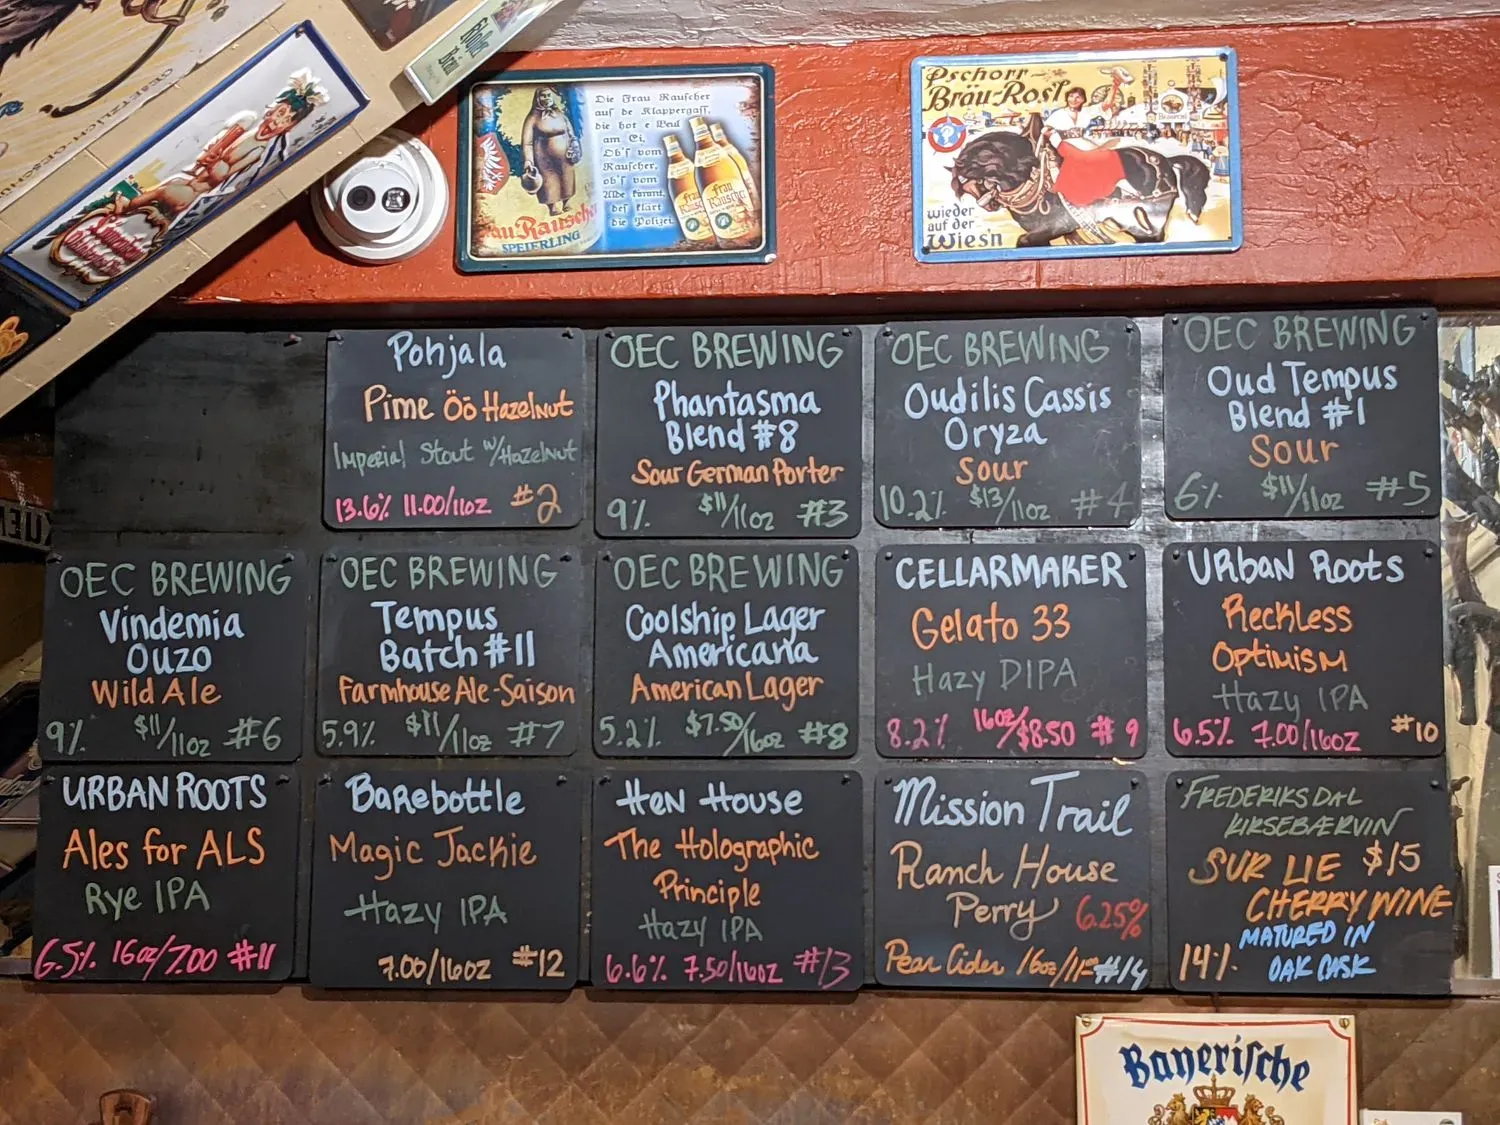 Kloster
Bräu
Die Frau Rauscher
aus de Klappergass,
die hot e Beul
am Ei,
Ob's vom
Rauscher,
ob's vom
Alde kimmt,
des klärt
die Polizei.
Frau Rauscher
SPEIERLING
Pschorr
Bräu-Rosl
wieder
auf der
Wies'n
Pohjala
Pime Öö Hazelnut
Imperial Stout w/Hazelnut
13.6% 11.00/11oz #2
OEC BREWING
Phantasma
Blend #8
Sour German Porter
9% $11/11oz #3
OEC BREWING
Oudilis Cassis
Oryza
Sour
10.2% $13/11oz #4
OEC BREWING
Oud Tempus
Blend #1
Sour
6% $11/11oz #5
OEC BREWING
Vindemia
Ouzo
Wild Ale
9% $11/11oz #6
OEC BREWING
Tempus
Batch #11
Farmhouse Ale-Saison
5.9% $11/11oz #7
OEC BREWING
Coolship Lager
Americana
American Lager
5.2% $7.50/16oz #8
CELLARMAKER
Gelato 33
Hazy DIPA
8.2% 16oz/$8.50 #9
URban Roots
Reckless
Optimism
Hazy IPA
6.5% 7.00/16oz #10
URBAN ROOTS
Ales for ALS
Rye IPA
6.5% 16oz/7.00 #11
BaRebottle
Magic Jackie
Hazy IPA
7.00/16oz #12
Hen House
The Holographic
Principle
Hazy IPA
6.6% 7.50/16oz #13
Mission Trail
Ranch House
Perry 6.25%
Pear Cider 16oz/11.00 #14
FREDERIKSDAL
KIRSEBÆRVIN
SUR LIE $15
CHERRY WINE
MATURED IN
14% OAK CASK
Bayerische